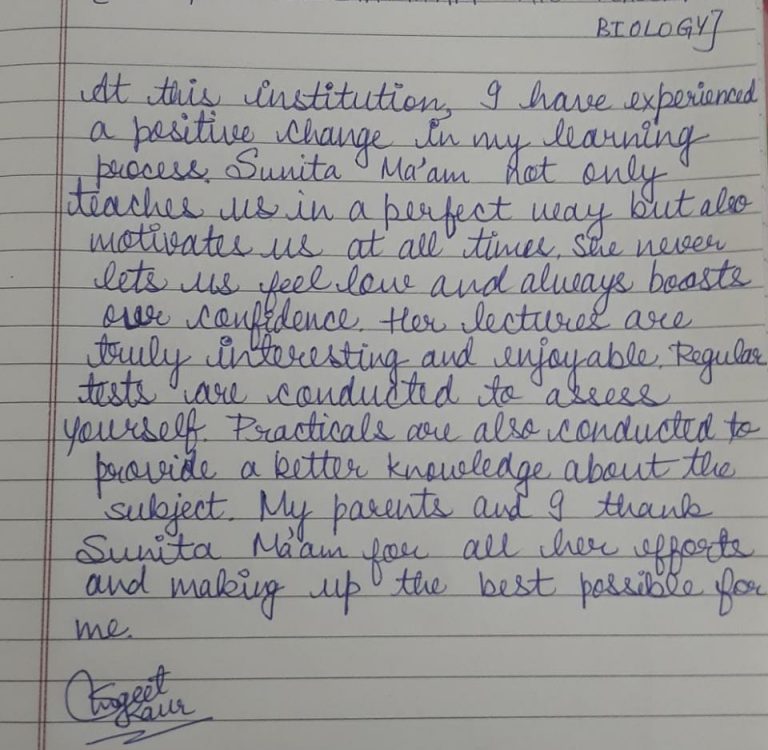 BIOLOGY]
At this institution, I have experienced
a positive change in my learning
process. Sunita Ma'am not only
teaches us in a perfect way but also
motivates us at all times. She never
lets us feel low and always boosts
our confidence. Her lectures are
truly interesting and enjoyable. Regular
tests are conducted to assess
yourself. Practicals are also conducted to
provide a better knowledge about the
subject. My parents and I thank
Sunita Ma'am for all her efforts
and making up the best possible for
me.
Kaur